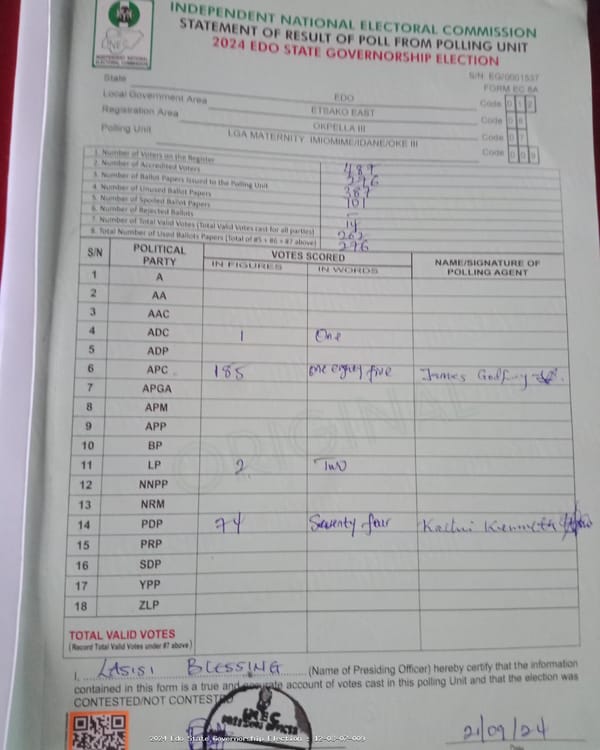 INDEPENDENT NATIONAL ELECTORAL COMMISSION
STATEMENT OF RESULT OF POLL FROM POLLING UNIT
2024 EDO STATE GOVERNORSHIP ELECTION
INEC
INDEPENDENT NATIONAL ELECTORAL COMMISSION
S/N: EG/0001537
FORM EC 8A
State EDO Code 0 1 2
Local Government Area ETSAKO EAST Code 0 8
Registration Area OKPELLA III Code 0 7
Polling Unit LGA MATERNITY IMIOMIME/IDANE/OKE III Code 0 0 9
1. Number of Voters on the Register 489
2. Number of Accredited Voters 276
3. Number of Ballot Papers Issued to the Polling Unit
4. Number of Unused Ballot Papers 101
5. Number of Spoiled Ballot Papers -
6. Number of Rejected Ballots 14
7. Number of Total Valid Votes (Total Valid Votes cast for all parties) 262
8. Total Number of Used Ballots Papers (Total of #5 + #6 + #7 above) 276
S/N POLITICAL PARTY VOTES SCORED NAME/SIGNATURE OF POLLING AGENT
IN FIGURES IN WORDS
1 A
2 AA
3 AAC
4 ADC 1 One
5 ADP
6 APC 185 One eighty five James Godfrey
7 APGA
8 APM
9 APP
10 BP
11 LP 2 Two
12 NNPP
13 NRM
14 PDP 74 Seventy four Kenneth
15 PRP
16 SDP
17 YPP
18 ZLP
ORIGINAL
TOTAL VALID VOTES
(Record Total Valid Votes under #7 above)
I, LASISI BLESSING (Name of Presiding Officer) hereby certify that the information
contained in this form is a true and accurate account of votes cast in this polling Unit and that the election was
CONTESTED/NOT CONTESTED
INEC
21/09/24
2024 Edo State Governorship Election : 12-08-07-009